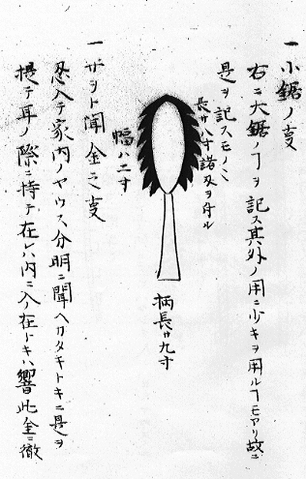 一 小鋸ノ㕝
右ニ大鋸ノヿヲ記ス其外ノ用ニ少キヲ用ルヿモアリ故ニ
是ヲ記スモノ也
長サ八寸諸刄ヲ付ル
幅ハ二寸
柄長サ九寸
一 サヲト聞金ノ㕝
忍入テ家内ノヤウス分明ニ聞ヘカタキトキニ是ヲ
提テ耳ノ際ニ持テ在レハ内ニ入在トキハ響此金ニ徹